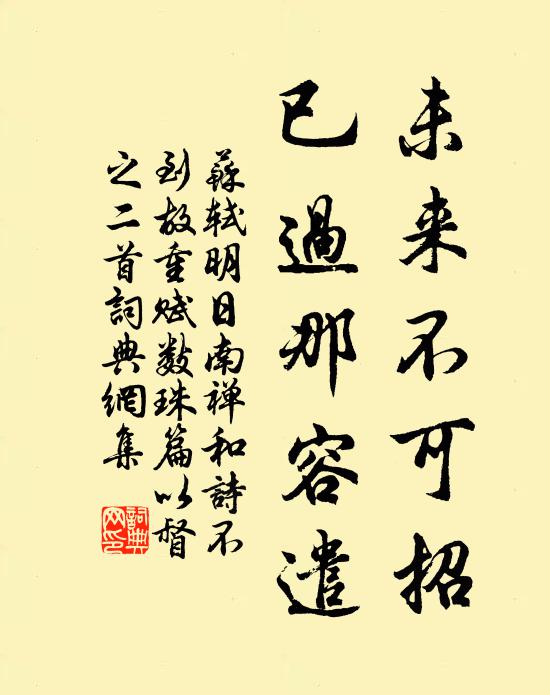 未来不可招
已過那容遣
蘇軾明日南禅和詩不
到故重賦数珠篇以督
之二首詞典網集
詞典
网印